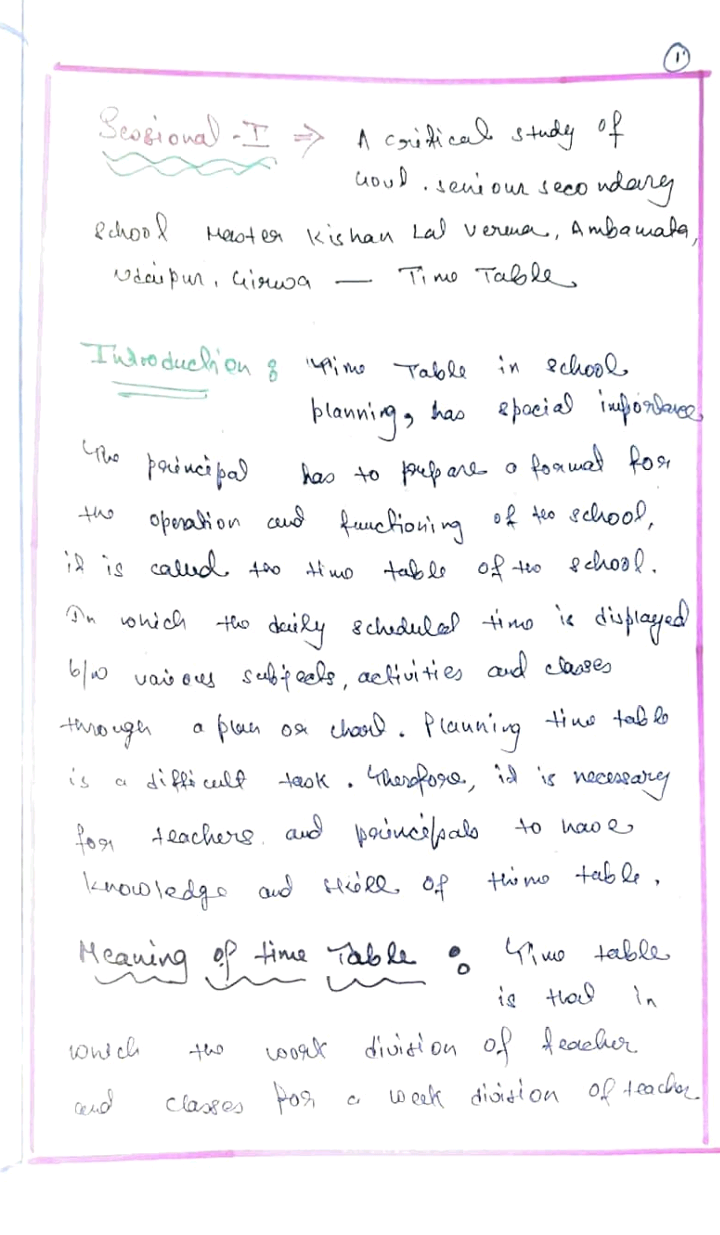 1
Sessional - I ⇒ A critical study of
Govt. seniour secondary
School Master Kishan Lal Verma, Ambamata,
Udaipur, Girwa — Time Table
Introduction : Time Table in school
planning, has special importance
The principal has to prepare a format for
the operation and functioning of the school,
it is called the time table of the school.
In which the daily scheduled time is displayed
b/w various subjects, activities and classes
through a plan or chart. Planning time table
is a difficult task. Therefore, it is necessary
for teachers and principals to have
knowledge and skill of time table.
Meaning of time Table : Time table
is that in
which the work division of teacher
and classes for a week division of teacher